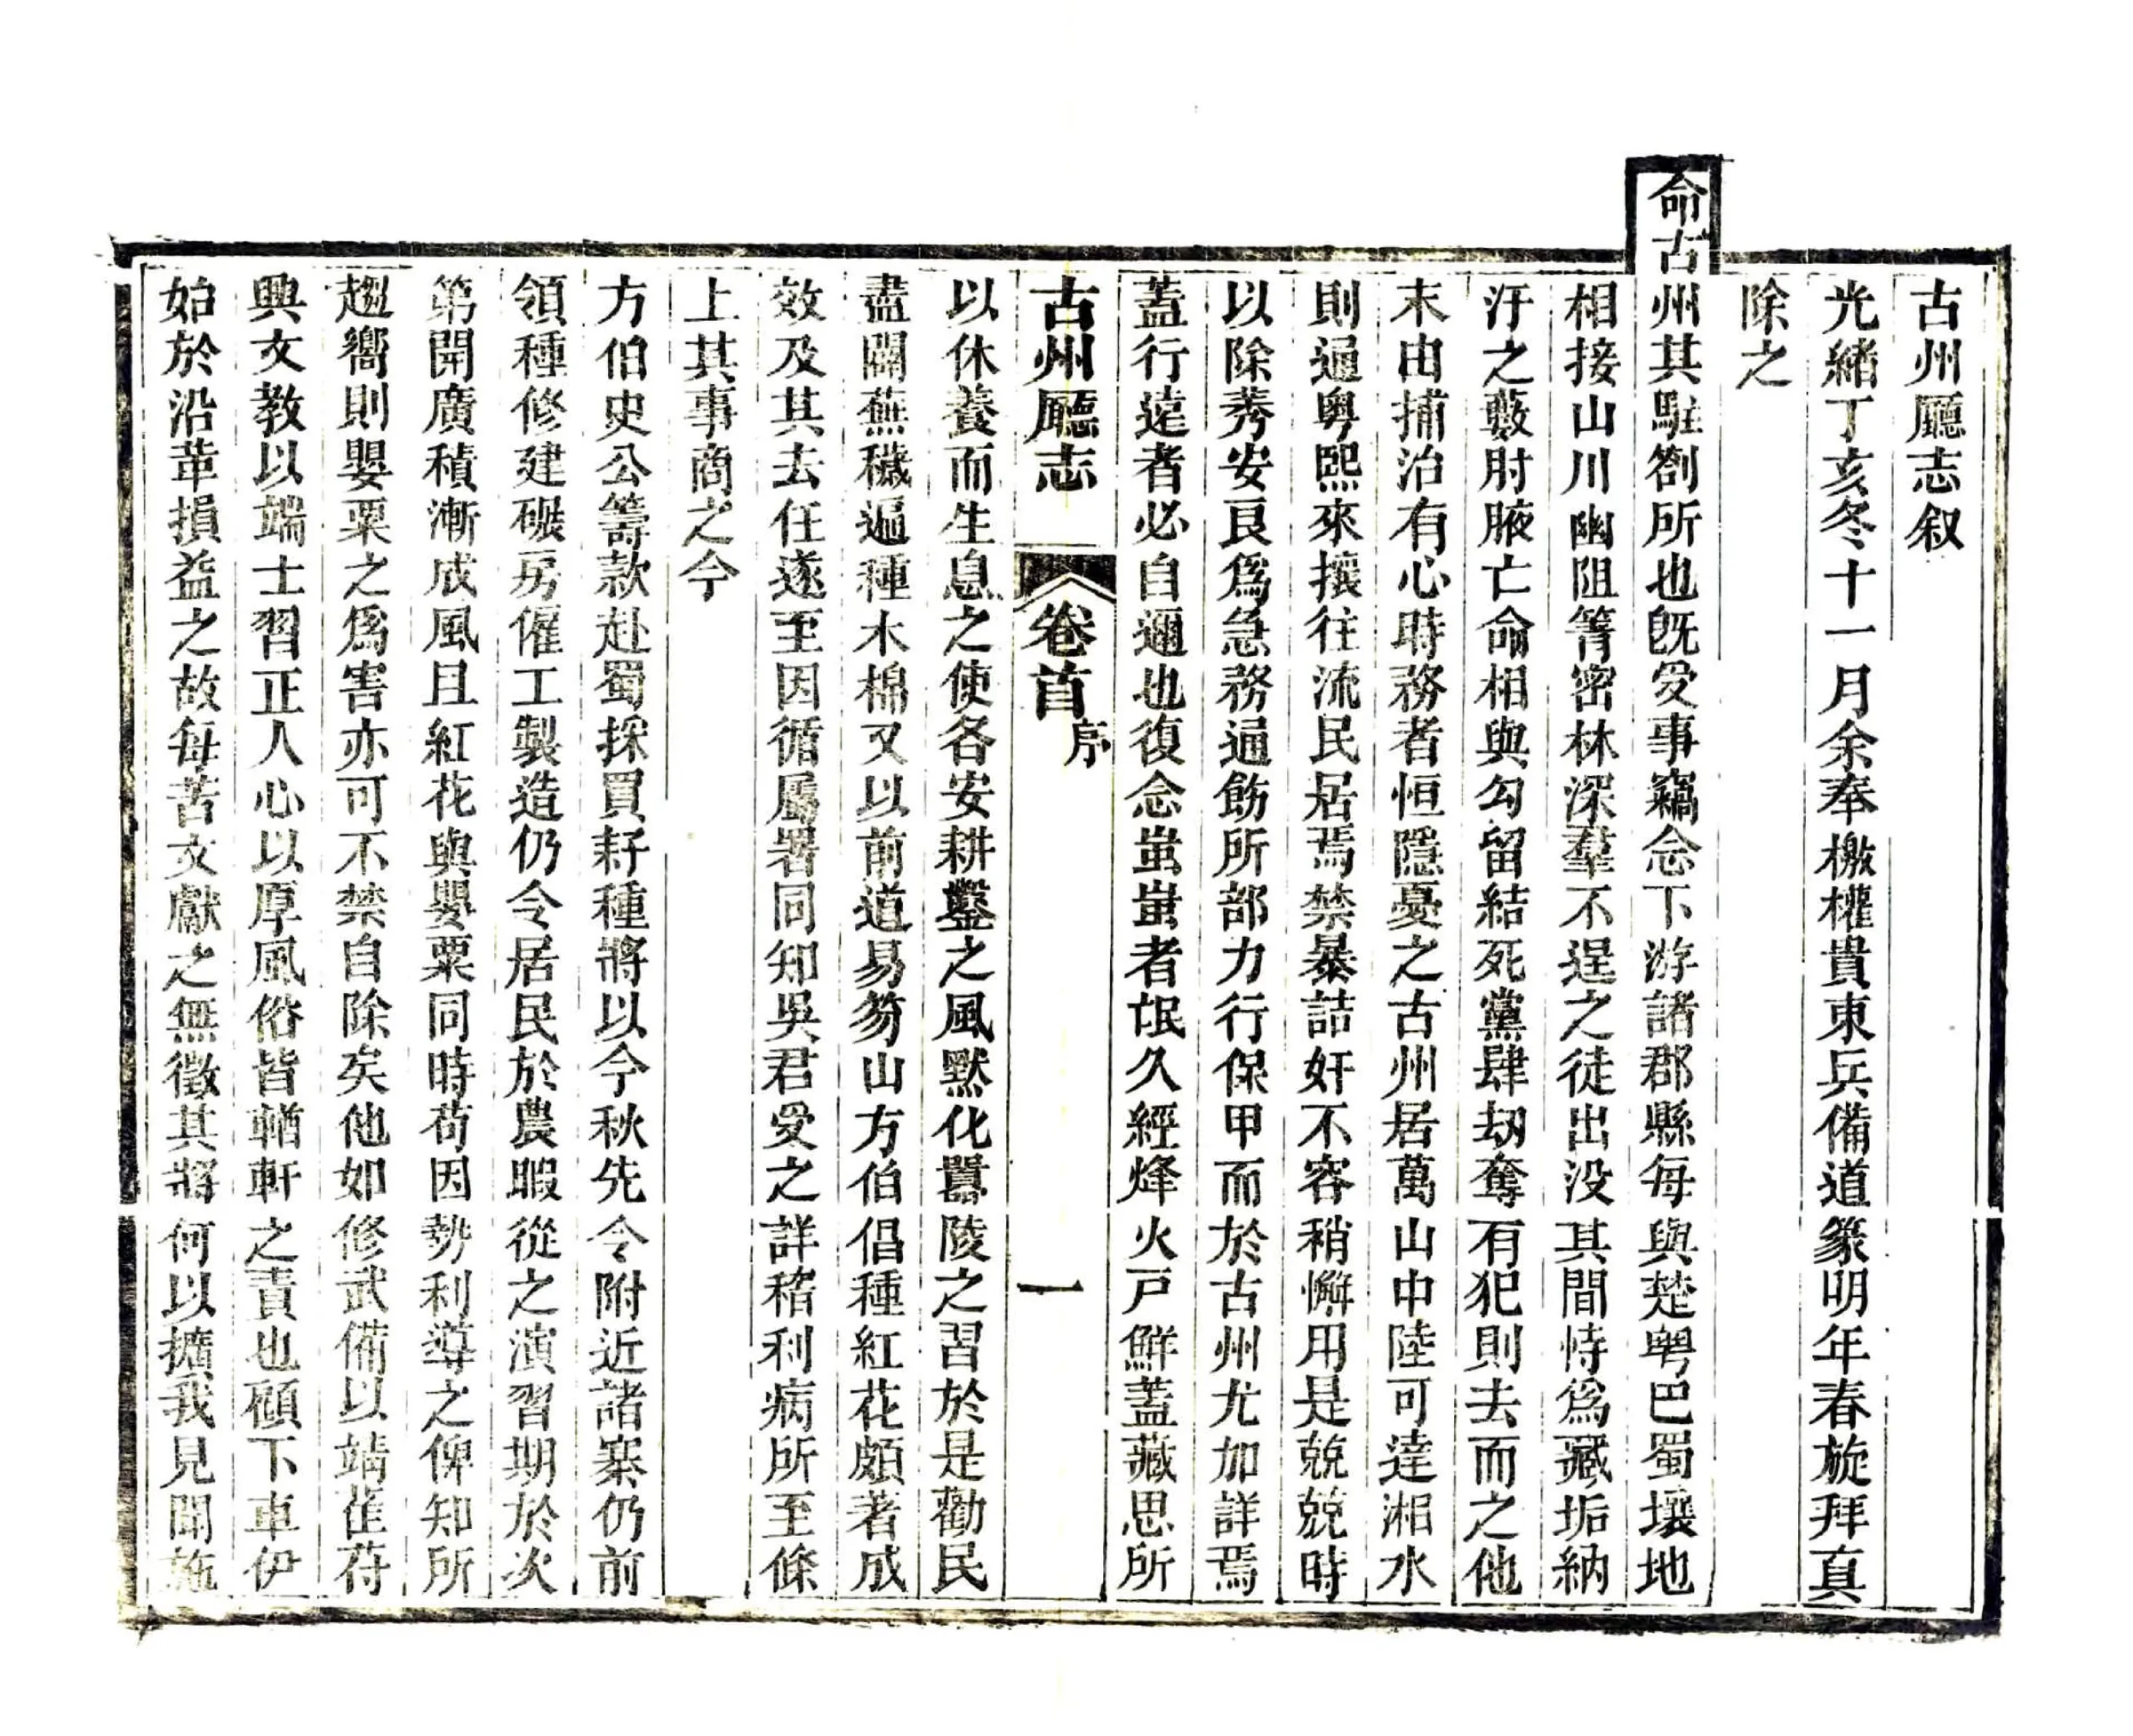 古州廳志叙
光緒丁亥冬十一月余奉檄權貴東兵備道篆明年春旋拜真
除之
命古州其駐劄所也旣受事竊念下游諸郡縣每與楚粤巴蜀壤地
相接山川幽阻箐密林深羣不逞之徒出没其間恃爲藏垢納
汙之藪肘腋亡命相與勾留結死黨肆刼奪有犯則去而之他
末由捕治有心時務者恒隱憂之古州居萬山中陸可達湘水
則通粤熙來攘往流民居焉禁暴詰奸不容稍懈用是兢兢時
以除莠安良爲急務通飭所部力行保甲而於古州尤加詳焉
蓋行遠者必自邇也復念蚩蚩者氓久經烽火戸鮮蓋藏思所
古州廳志 卷首 序 一
以休養而生息之使各安耕鑿之風默化囂陵之習於是勸民
盡闢蕪穢遍種木棉又以前道易笏山方伯倡種紅花頗著成
效及其去任遂至因循屬署同知吳君受之詳稽利病所至條
上其事商之今
方伯史公籌款赴蜀採買籽種將以今秋先令附近諸寨仍前
領種修建碾房僱工製造仍令居民於農暇從之演習期於次
第開廣積漸成風且紅花與罌粟同時苟因勢利導之俾知所
趨嚮則罌粟之爲害亦可不禁自除矣他如修武備以靖萑苻
興文教以端士習正人心以厚風俗皆輶軒之責也顧下車伊
始於沿革損益之故每苦文獻之無徵其將何以擴我見聞施